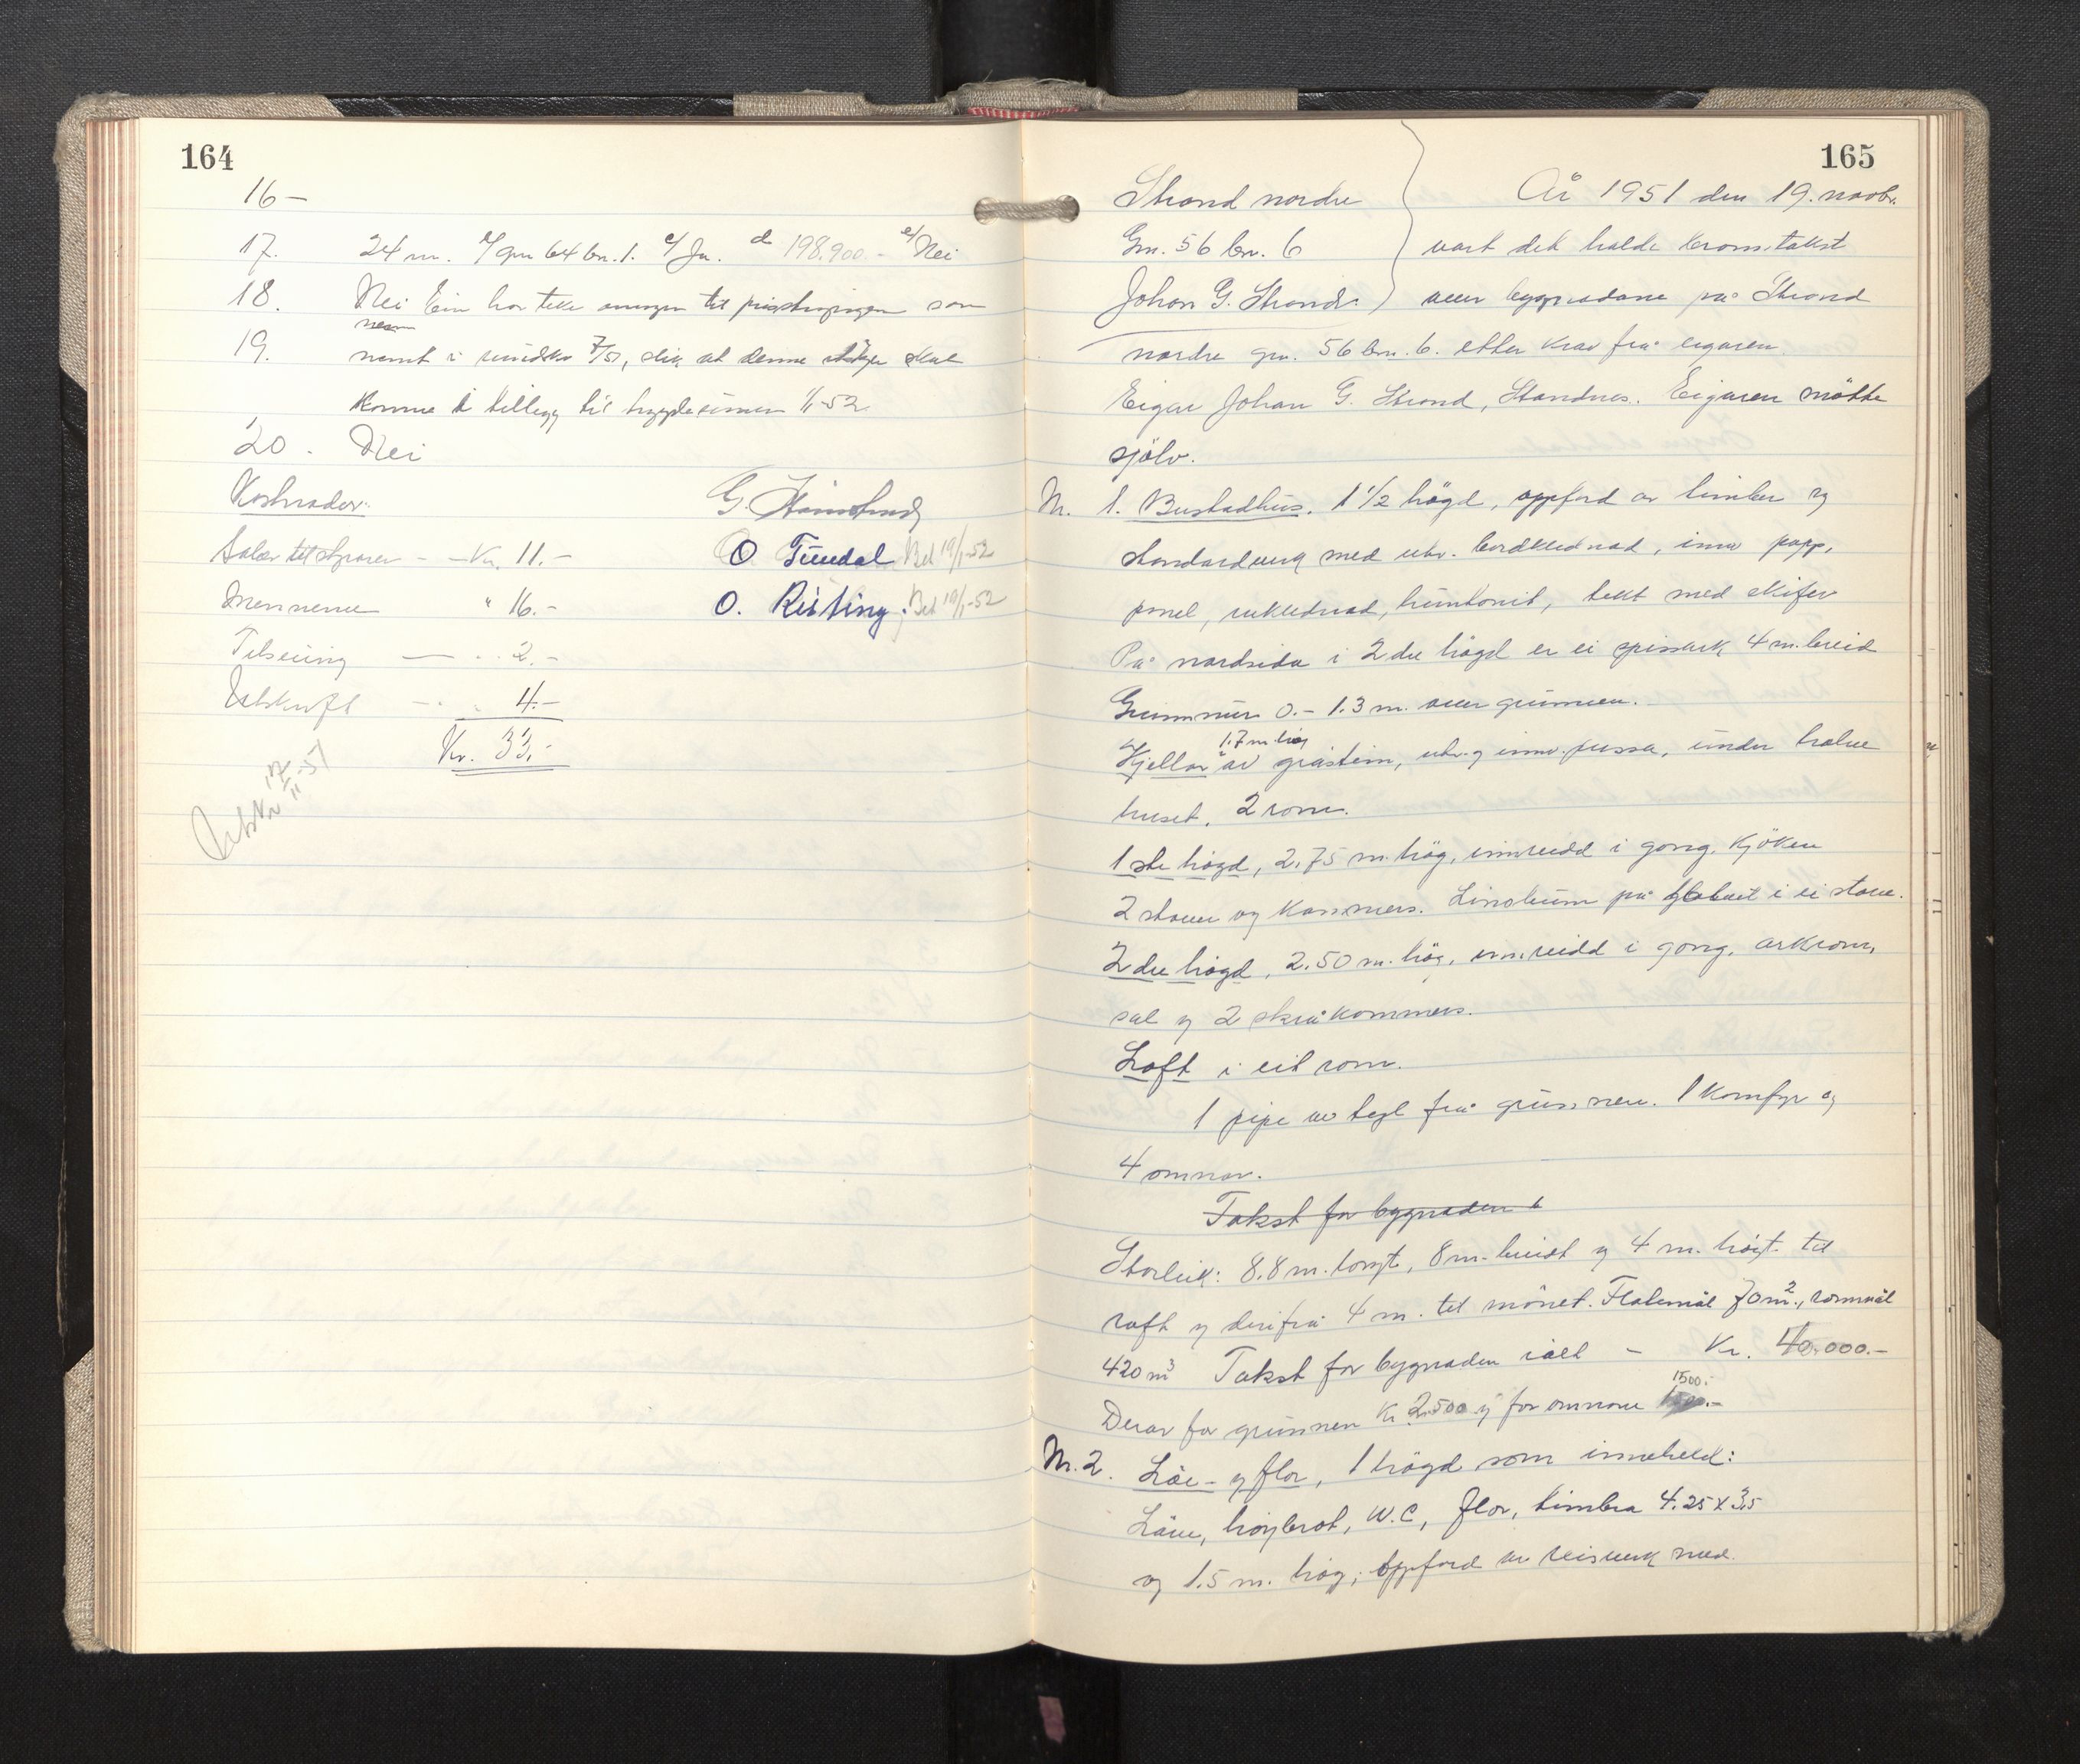 164
16 —
17. 24 m. b/ gnr 64 bn. 1. c/ Ja. d 198.900.- e/ Nei
18. Nei Ein har teke omsyn til prisstigingen som
19. nemt i rundskr 7/51, slik at denne skal
komme i tillegg til byggjesummen 1/1-52
20. Nei
Kostnader:
Salær til styraren - - Kr. 11.-
Mennene " 16.-
Utskrift - - 4.-
Kr. 33.-
Utskr 17/11-51
O Tundal Bet 19/1-52
O. Risting. Bet 19/1-52
165
Strand nordre
Gnr. 56 bn. 6
Johan G. Strand.
År 1951 den 19. novbr.
vart det halde branntakst
over bygnadane på Strand
nordre gnr. 56 bn. 6. etter krav frå eigaren.
Eigar Johan G. Strand, Standnes. Eigaren møtte
sjølv.
Nr. 1. Bustadhus. 1 1/2 högd, oppførd av timber og
standardverk med utv. bordklednad, innv papp,
panel, trekledned, huntonit, tekt med skifer
På nordsida i 2dre högd er ei spissark 4 m. breid
Grunnmur 0.- 1.3 m. over grunnen.
Kjellar 1,7 m. høg av gråstein, utv. og innv. pussa, under halve
huset. 2 rom.
1ste högd, 2.75 m. høg, innreidd i gong, kjøken
2 stover og kammers. Linoleum på golvet i ei stove.
2dre högd, 2.50 m. høg, innreidd i gong, arkrom,
sal og 2 skråkammers.
Loft i eit rom.
1 pipe av tegl frå grunnen. 1 komfyr og
4 omnar.
Takst for bygnaden
Storleik: 8.8 m. langt, 8 m. breidt og 4 m. høgt til
raft og derifrå 4 m. til mønet. Flatemål 70 m²., rommål
420 m³ Takst for bygnaden ialt - Kr. 40.000.-
Derav for grunnen Kr. 2.500 og for omnane 1500.-
Nr. 2. Löe- og flor, 1 högd som inneheld:
Löve, høybrot, W.C, flor, timbra 4.25 x 3,5
og 1.5 m. høg, oppførd av reisverk med